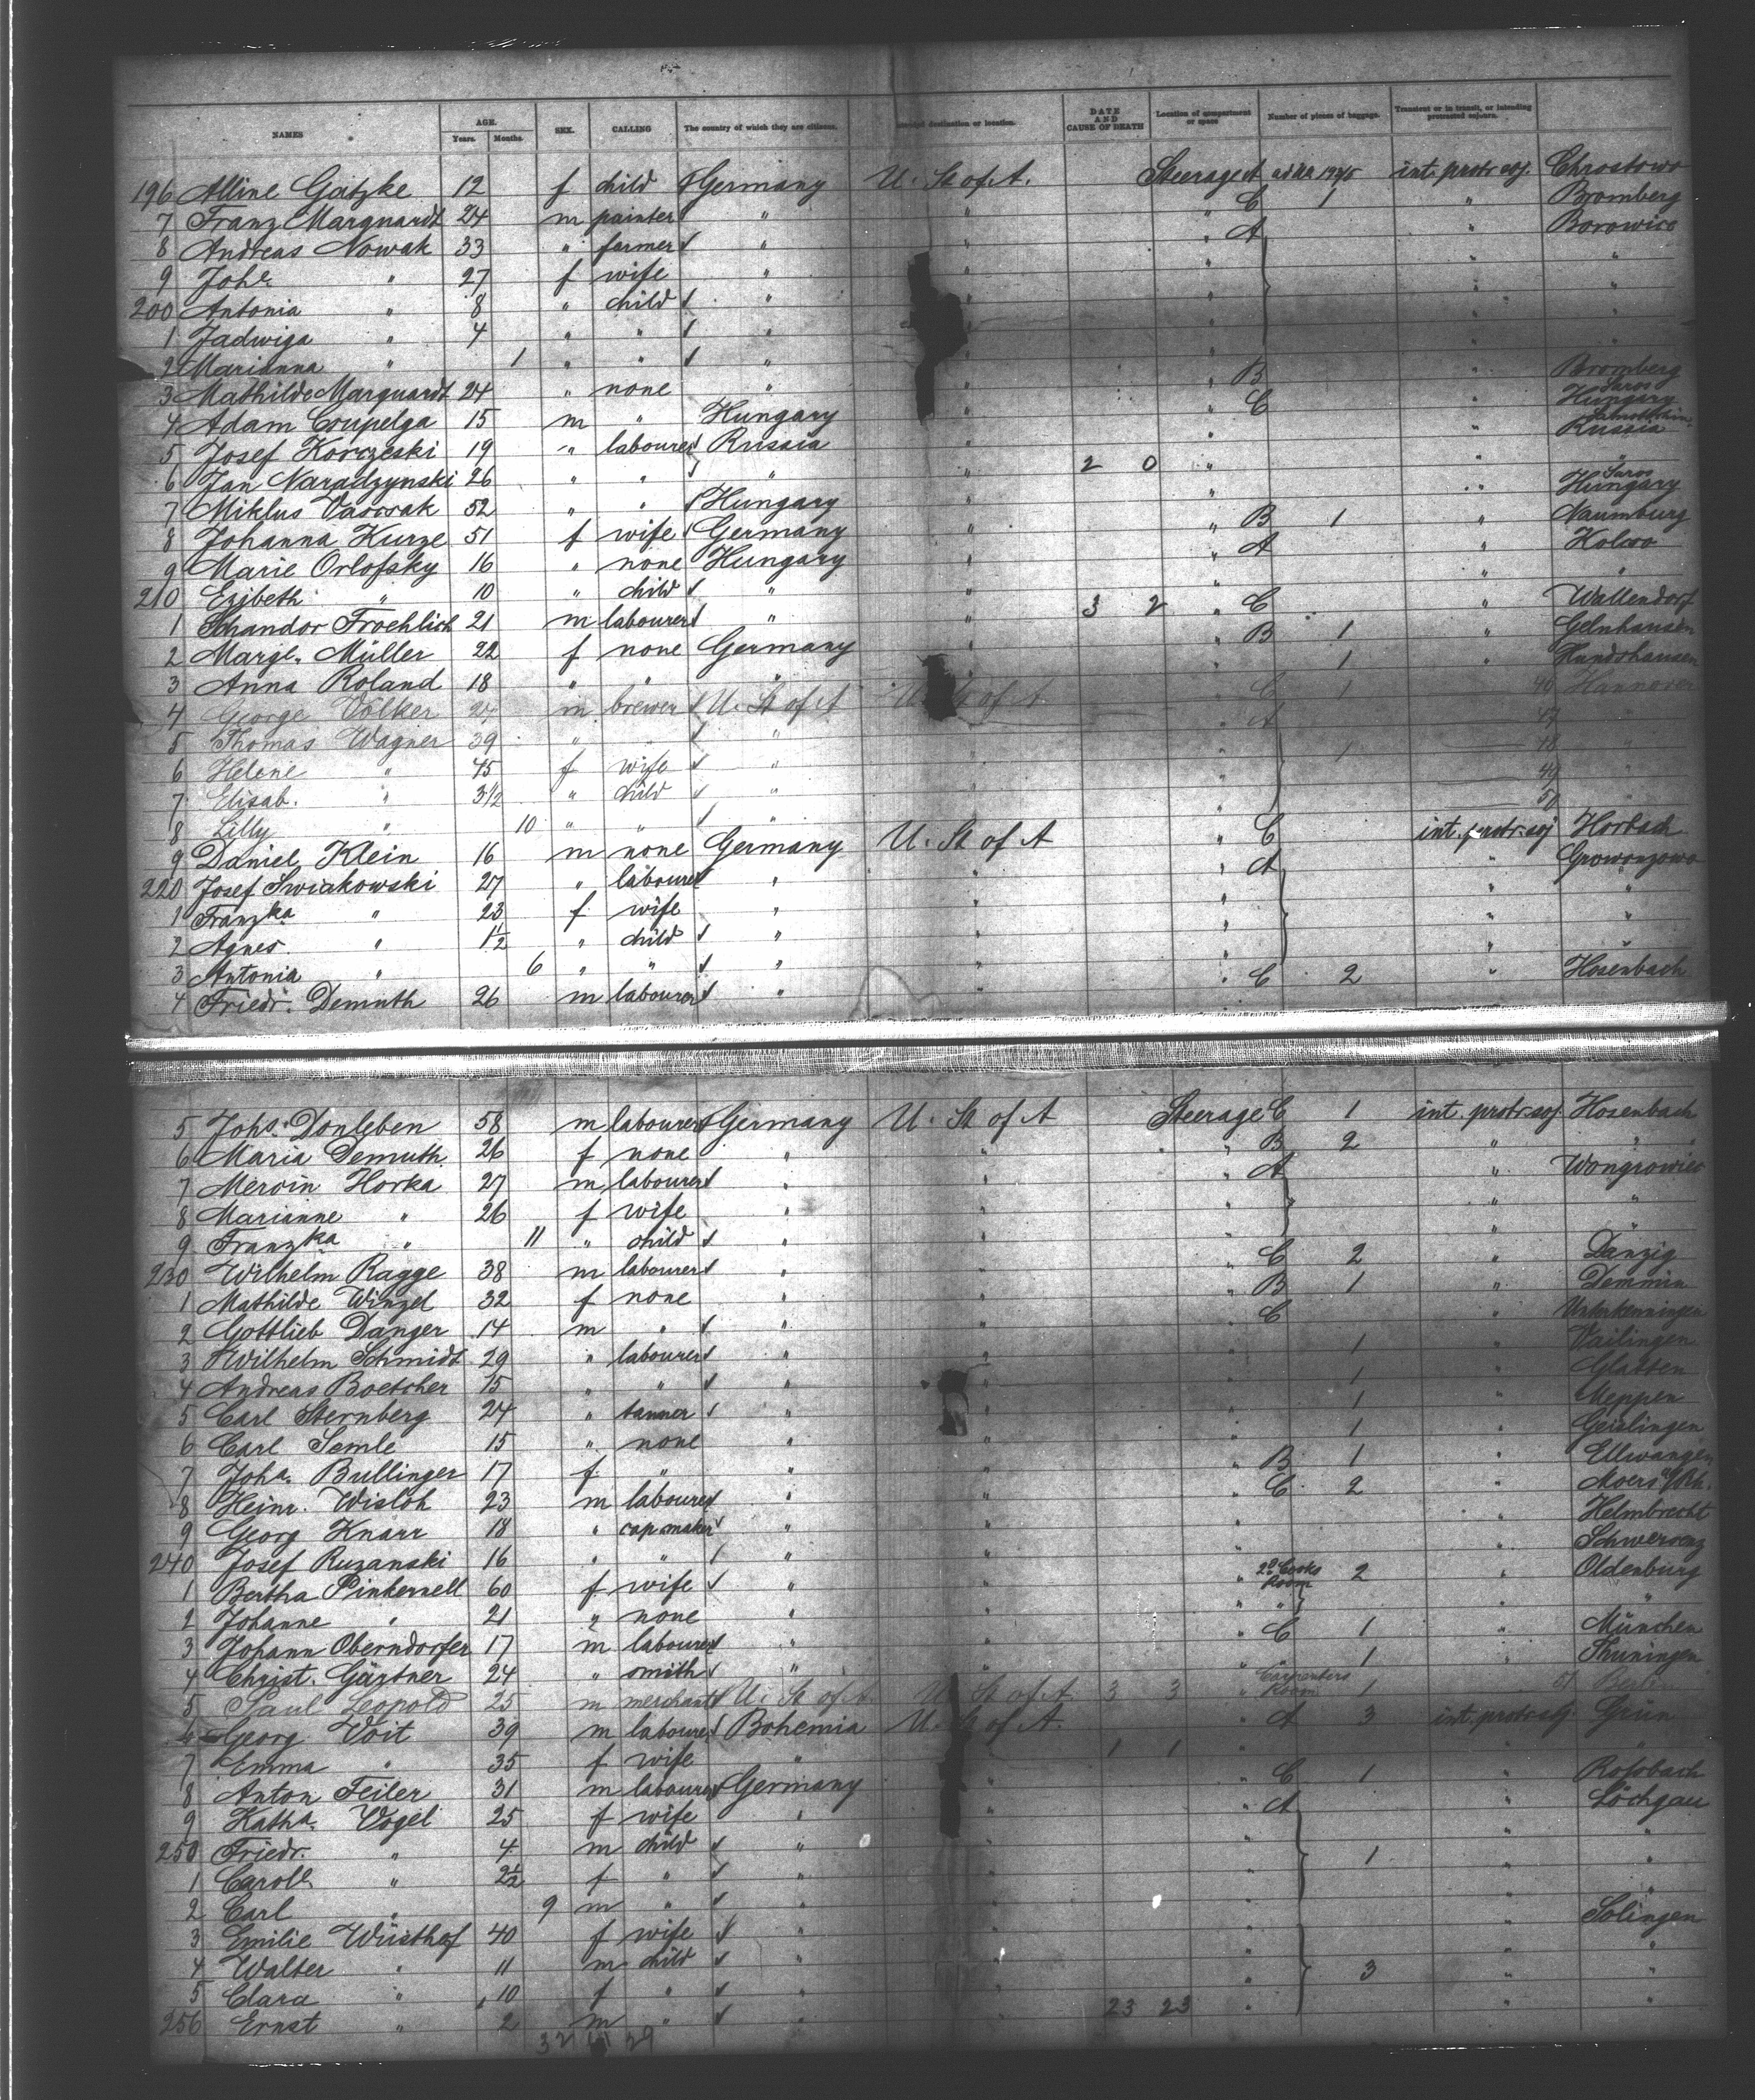 NAMES AGE. Years. Months. SEX. CALLING The country of which they are citizens. destination or location. DATE AND CAUSE OF DEATH Location of compartment or space Number of pieces of baggage. Transient or in transit, or intending protracted sojourn.
196 Alline Gatzke 12 f child Germany U. St of A. Steerage A int. protr. soj. Chrostowo
7 Franz Marquardt 24 m painter " " " C 1 " Bromberg
8 Andreas Nowak 33 " farmer " " " A " Borowice
9 Joh. " 27 f wife " " " " "
200 Antonia " 8 " child " " " " "
1 Jadwiga " 4 " " " " " " "
2 Marianna " 1 " " " "
3 Mathilde Marquardt 24 " none " " " B " Bromberg
4 Adam Coupelga 15 m " Hungary " " C " Saros Hungary
5 Josef Korczeski 19 " labourer Russia " " " Russia
6 Jan Naradzynski 26 " " " " 2 0 " "
7 Miklus Vascsak 52 " " Hungary " " " Saros Hungary
8 Johanna Kurze 51 f wife Germany " " B 1 " Naumburg
9 Marie Orlofsky 16 " none Hungary " " A "
210 Ezibeth " 10 " child " " " " "
1 Schandor Froehlich 21 m labourer " " 3 2 " C " Wallendorf
2 Margt. Müller 22 f none Germany " " B 1 " Gelnhausen
3 Anna Roland 18 " " " " " 1 " Hundshausen
4 George Völker 24 m brewer U. St of A U. St of A " C 1 46 Hannover
5 Thomas Wagner 39 " " " " A 47 "
6 Helene " 45 f wife " " 1 48 "
7 Elisab. " 3 1/2 " child " " 49 "
8 Lilly " 10 " " " " 50 "
9 Daniel Klein 16 m none Germany U. St of A " C int. protr. soj Horbach
220 Josef Swiakowski 27 " labourer " " " A "
1 Franzka " 23 f wife " " " " "
2 Agnes " 1 1/2 " child " " " " "
3 Antonia " 6 " " " " " " "
4 Friedr. Demuth 26 m labourer " " " C 2 " Hosenbach
5 Johs. Donleben 58 m labourer Germany U. St of A Steerage C 1 int. protr. soj. Hosenbach
6 Maria Demuth 26 f none " " " B 2 " "
7 Mervin Horka 27 m labourer " " " A " Wongrowiec
8 Marianne " 26 f wife " " " " "
9 Franzka " 11 " child " " " "
230 Wilhelm Ragge 38 m labourer " " " C 2 " Danzig
1 Mathilde Winzel 32 f none " " " B 1 " Demmin
2 Gottlieb Danger 14 m " " " " C "
3 Wilhelm Schmidt 29 " labourer " " " 1 " Vailingen
4 Andreas Boetcher 15 " " " " " 1 " Glatten
5 Carl Sternberg 24 " tanner " " " 1 " Meppen
6 Carl Semle 15 " none " " " 1 " Geislingen
7 Joha. Bullinger 17 f " " " " B 1 " Ellwangen
8 Heinr. Wisloh 23 m labourer " " " C 2 " Moers a/Rh.
9 Georg Knarr 18 " cap maker " " " " Helmbrecht
240 Josef Ruzanski 16 " " " " " " Schwersenz
1 Bertha Pinkernell 60 f wife " " " 2d Cooks Room 2 " Oldenburg
2 Johanne " 21 " none " " " " " "
3 Johann Oberndorfer 17 m labourer " " " C 1 " München
4 Christ. Gärtner 24 " smith " " " 1 " Thuningen
5 Paul Leopold 25 m merchant U. St of A U. St of A 3 3 " Carpenters Room 1 51 Berlin
6 Georg Voit 39 m labourer Bohemia U. St of A. " A 3 int. protr. soj. Grün
7 Emma " 35 f wife " 1 1 " " "
8 Anton Feiler 31 m labourer Germany " " C 1 " Rossbach
9 Katha. Vogel 25 f wife " " " A " Löchgau
250 Friedr. " 4 m child " " " " "
1 Carol. " 2 1/2 f " " " " 1 " "
2 Carl " 9 m " " " " " "
3 Emilie Wüsthof 40 f wife " " " " Solingen
4 Walter " 11 m child " " " " "
5 Clara " 10 f " " " " 3 " "
256 Ernst " 2 m " " " 23 23 " " "